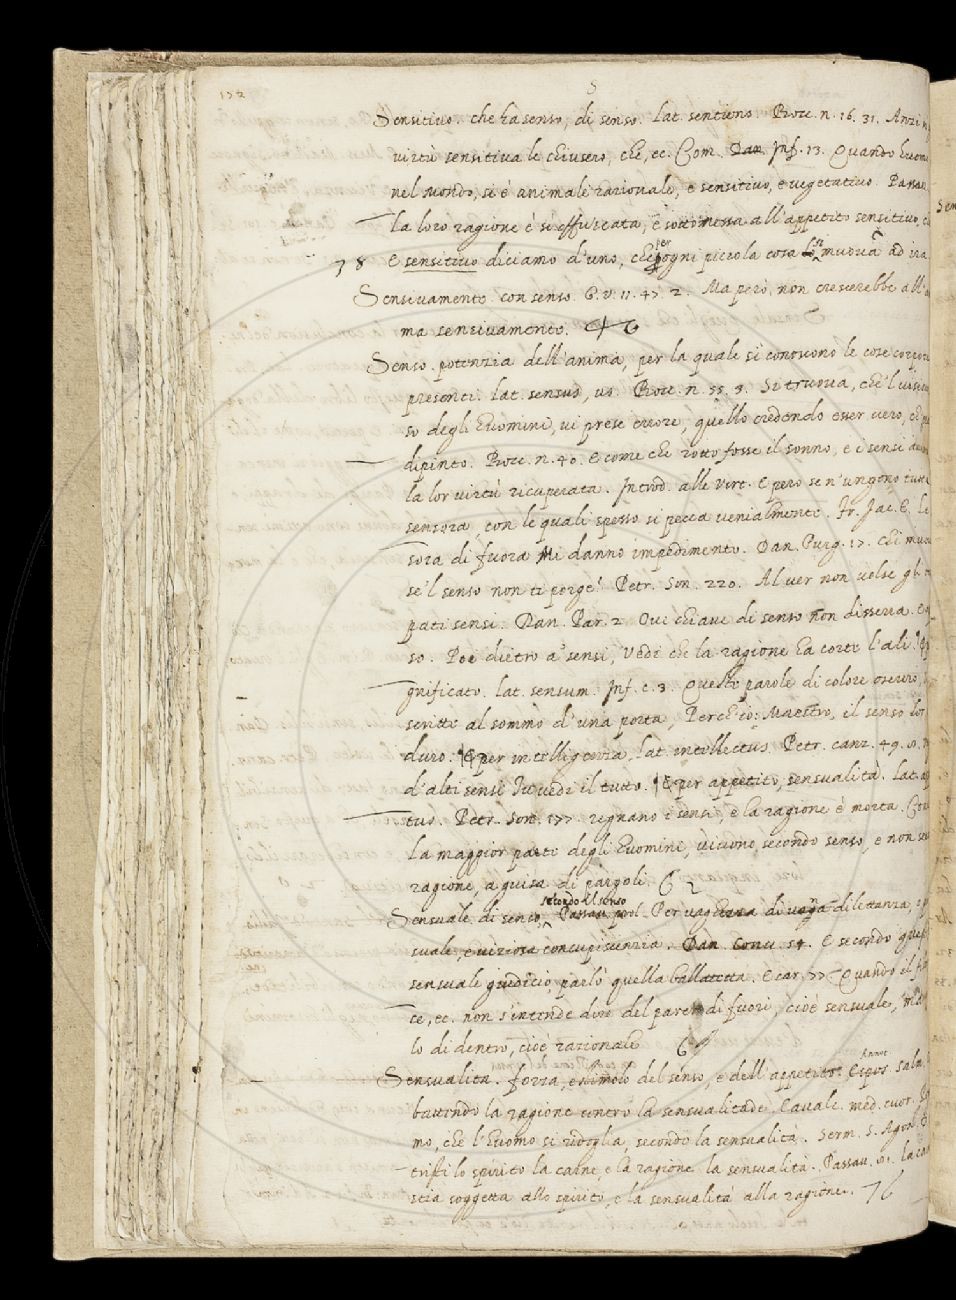 132
S
Sensitivo. che ha senso, di senso. Lat. sentiens. Bocc. n. 16. 31. Anzi
virtù sensitiva le chiusero, che, ec. Com. Inf. 13. Quando huomo
nel mondo, si è animale razionale, e sensitivo, e vegetativo. Passav.
la loro ragione è sì offuscata, e sottomessa all'appetito sensitivo,
78 E sensitivo diciamo d'uno, che per ogni piccola cosa si muova ad ira
Sensivamente. con senso. G. V. 11. 47. 2. Ma però non crescerebbe all'
ma sensivamente.
Senso. potenzia dell'anima, per la quale si conoscono le cose corpore
presenti. Lat. sensus, us. Bocc. n. 55. 3. Si truova, che'l visivo
so degli huomini, vi prese errore, quello credendo esser vero,
dipinto. Bocc. n. 40. E come che rotto fosse il sonno, e i sensi
la lor virtù ricuperata. Introd. alle Virt. E però se n'ungono tutti
sensora, con le quali spesso si pecca venialmente. Fr. Jac. C. le
sora di fuora Mi danno impedimento. Dan. Purg. 17. Chi muove
se'l senso non ti porge? Petr. Son. 220. Al ver non volse gli
pati sensi. Dan. Par. 2. Ove chiave di senso non disserra.
so. Poi dietro a' sensi, Vedi che la ragione ha corte l'ali.
gnificato. Lat. sensum. Inf. c. 3. Queste parole di colore oscuro,
scritte al sommo d'una porta, Perch'io: Maestro, il senso lor
duro. E per intelligenzia, Lat. intellectus. Petr. canz. 49. 8.
d'alti sensi Tu vedi il tutto. E per appetito, sensualità. Lat.
tus. Petr. Son. 177. regnano i sensi, e la ragione è morta.
la maggior parte degli huomini, vivono secondo senso, e non
ragione, a guisa di pargoli. 62
secondo il senso
Sensuale. di senso, Passav. prol. Per vaghezza di vana dilettanza,
suale, e viziosa concupiscenzia. Dan. Conv. 54. E secondo
sensuale giudicio, parlò quella ballatetta. E car. 77 Quando il
ce, ec. non s'intende dire del pare di fuori, cioè sensuale,
lo di dentro, cioè razionale
Sensualità. forza, e stimolo del senso, e dell'appetito. Espos. Salm.
battendo la ragione contro la sensualitade. Cavalc. med. cuor.
mo, che l'huomo si ritoglia secondo la sensualità. Serm. S. Agost.
trifi lo spirito la carne, e la ragione la sensualità. Passav. 81.
stia soggetta allo spirito, e la sensualità alla ragione. 76